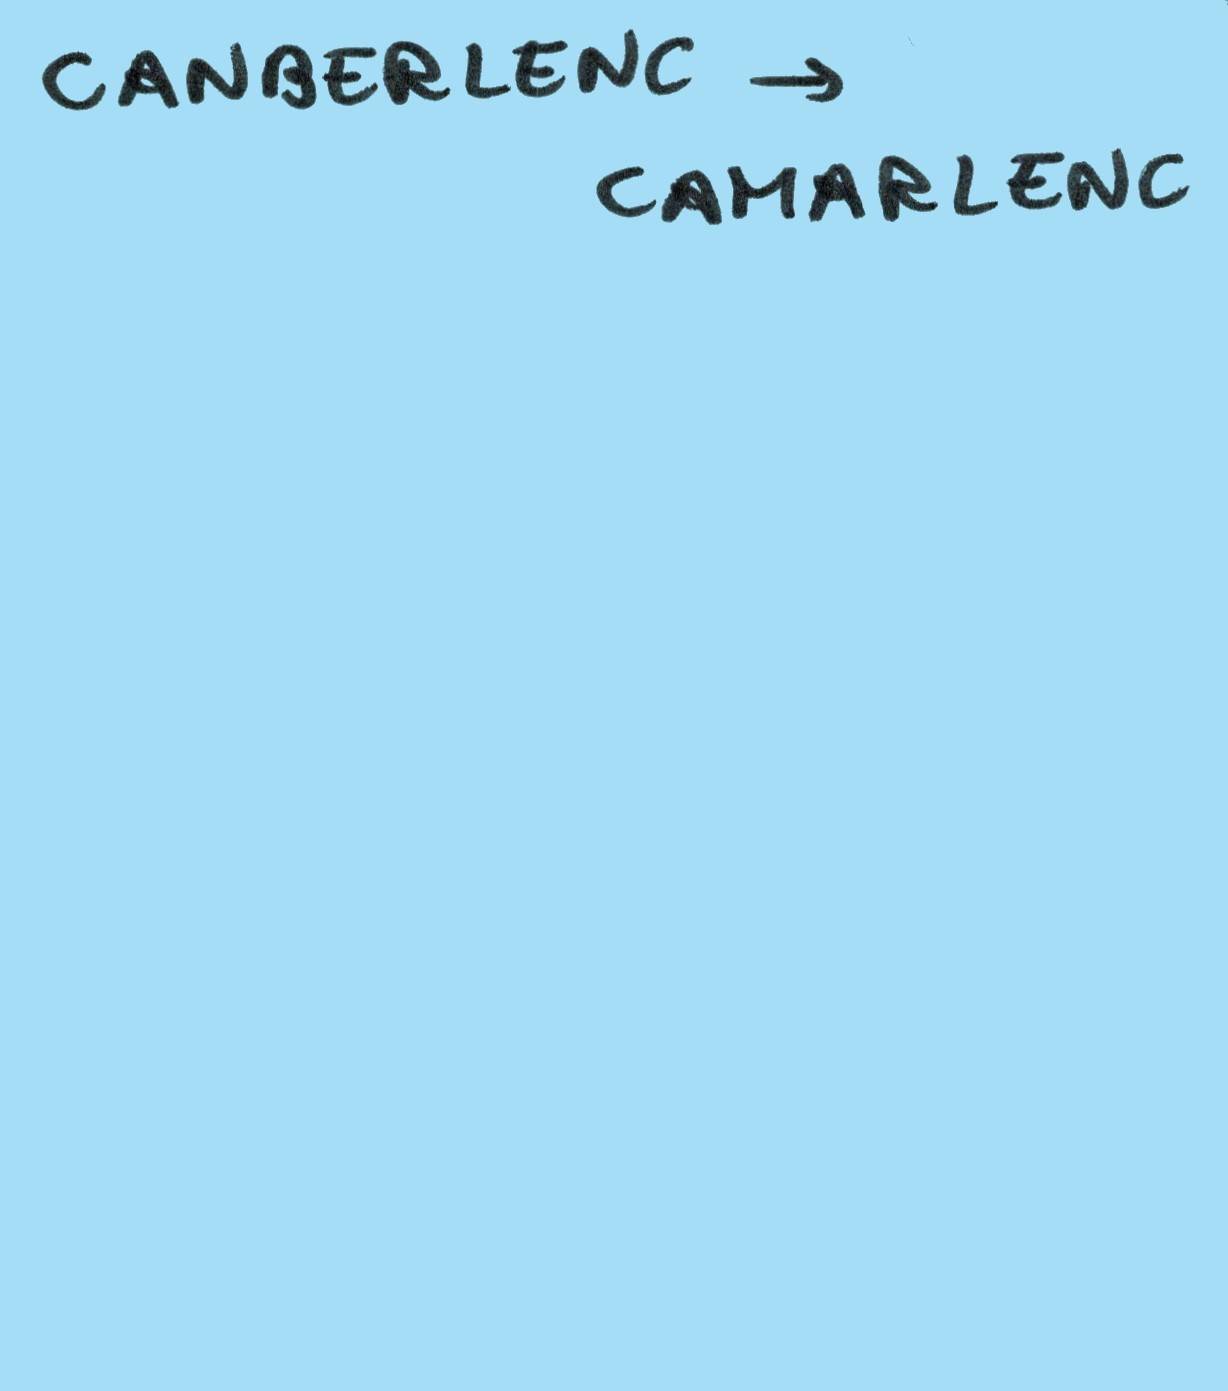 CANBERLENC →
CAMARLENC